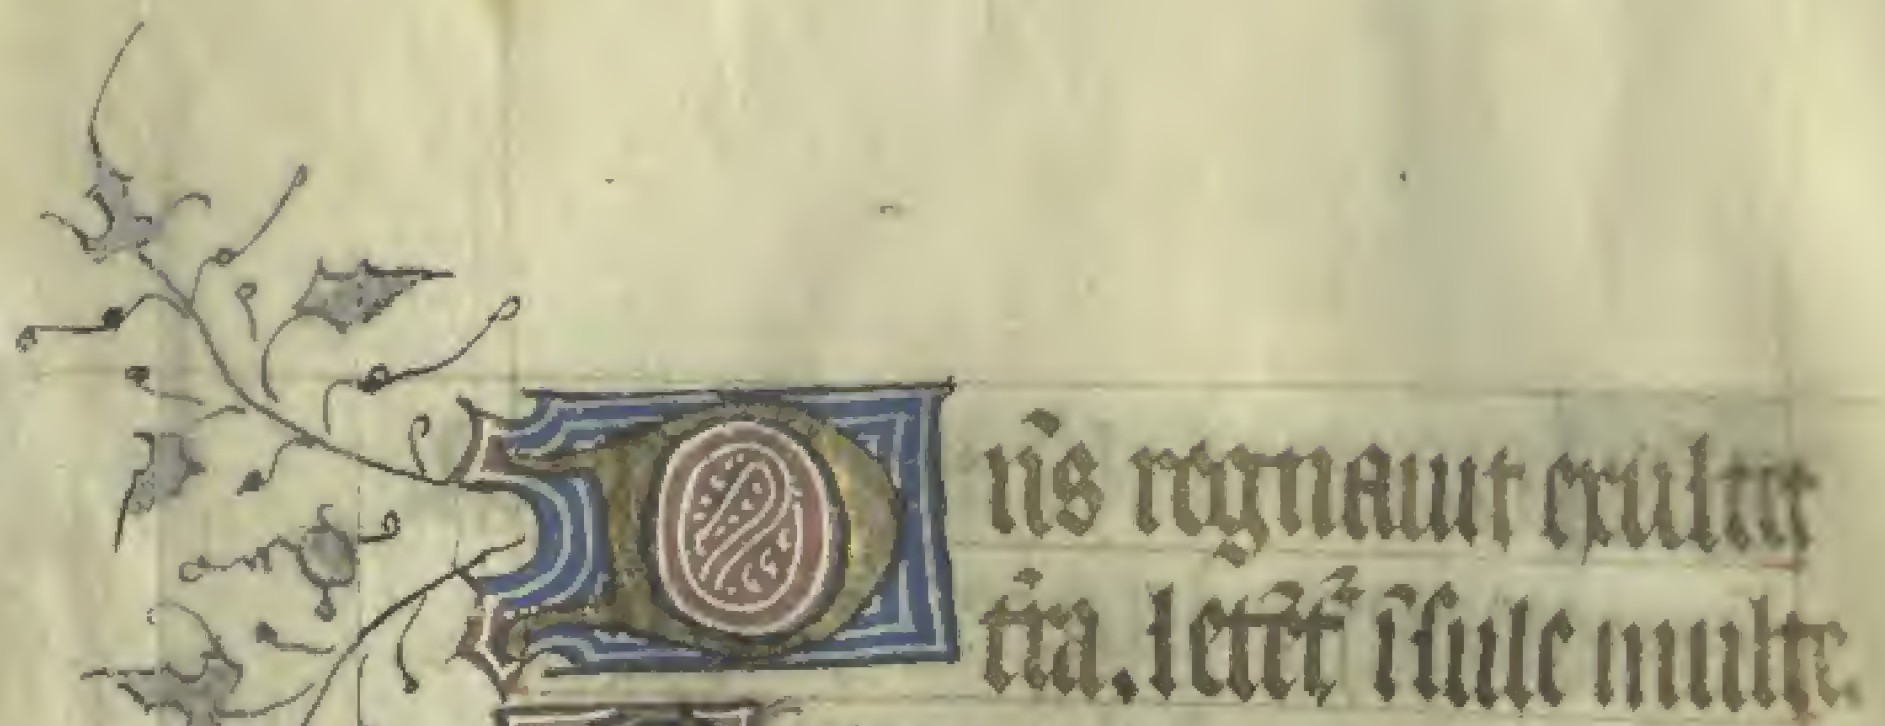 Dn̄s regnauit exultet
t̄ra. letēt̄ ĩsule multe.